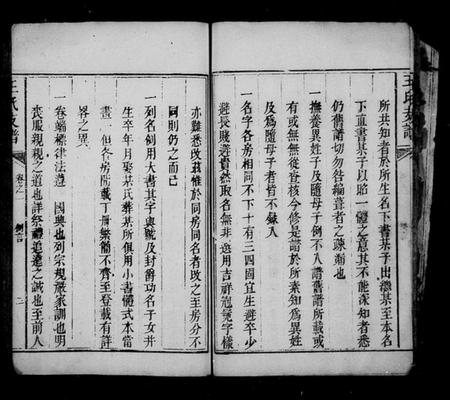 所共知者於所生名下書某子出繼某至本名
下直書某子以昭一體之意其不能深知者悉
仍舊譜切勿咎編葺者之疎漏也
一撫養異姓子及隨母子例不入譜舊譜所載或
有或無無從查核今修是譜於所素知爲異姓
及爲隨母子者皆不錄入
一名字各房相同不下十有三四固宜生避卒少
避長賤避貴然取名無十非選用吉祥冠冕字樣
亦難悉改茲惟於同房同名者改之至房分不
同則仍之而已
一列名例用大書其字與號及封爵功名子女并
生卒年月娶某氏葬某所俱用小書儀式本當
畫一但各房開載丁册繁簡不齊至登載有詳
畧之異
一卷端標律法遵 國典也列宗規嚴家訓也明
喪服親親之道也詳祭禮追遠之誠也至前人
王氏支譜
卷之一
例言
二